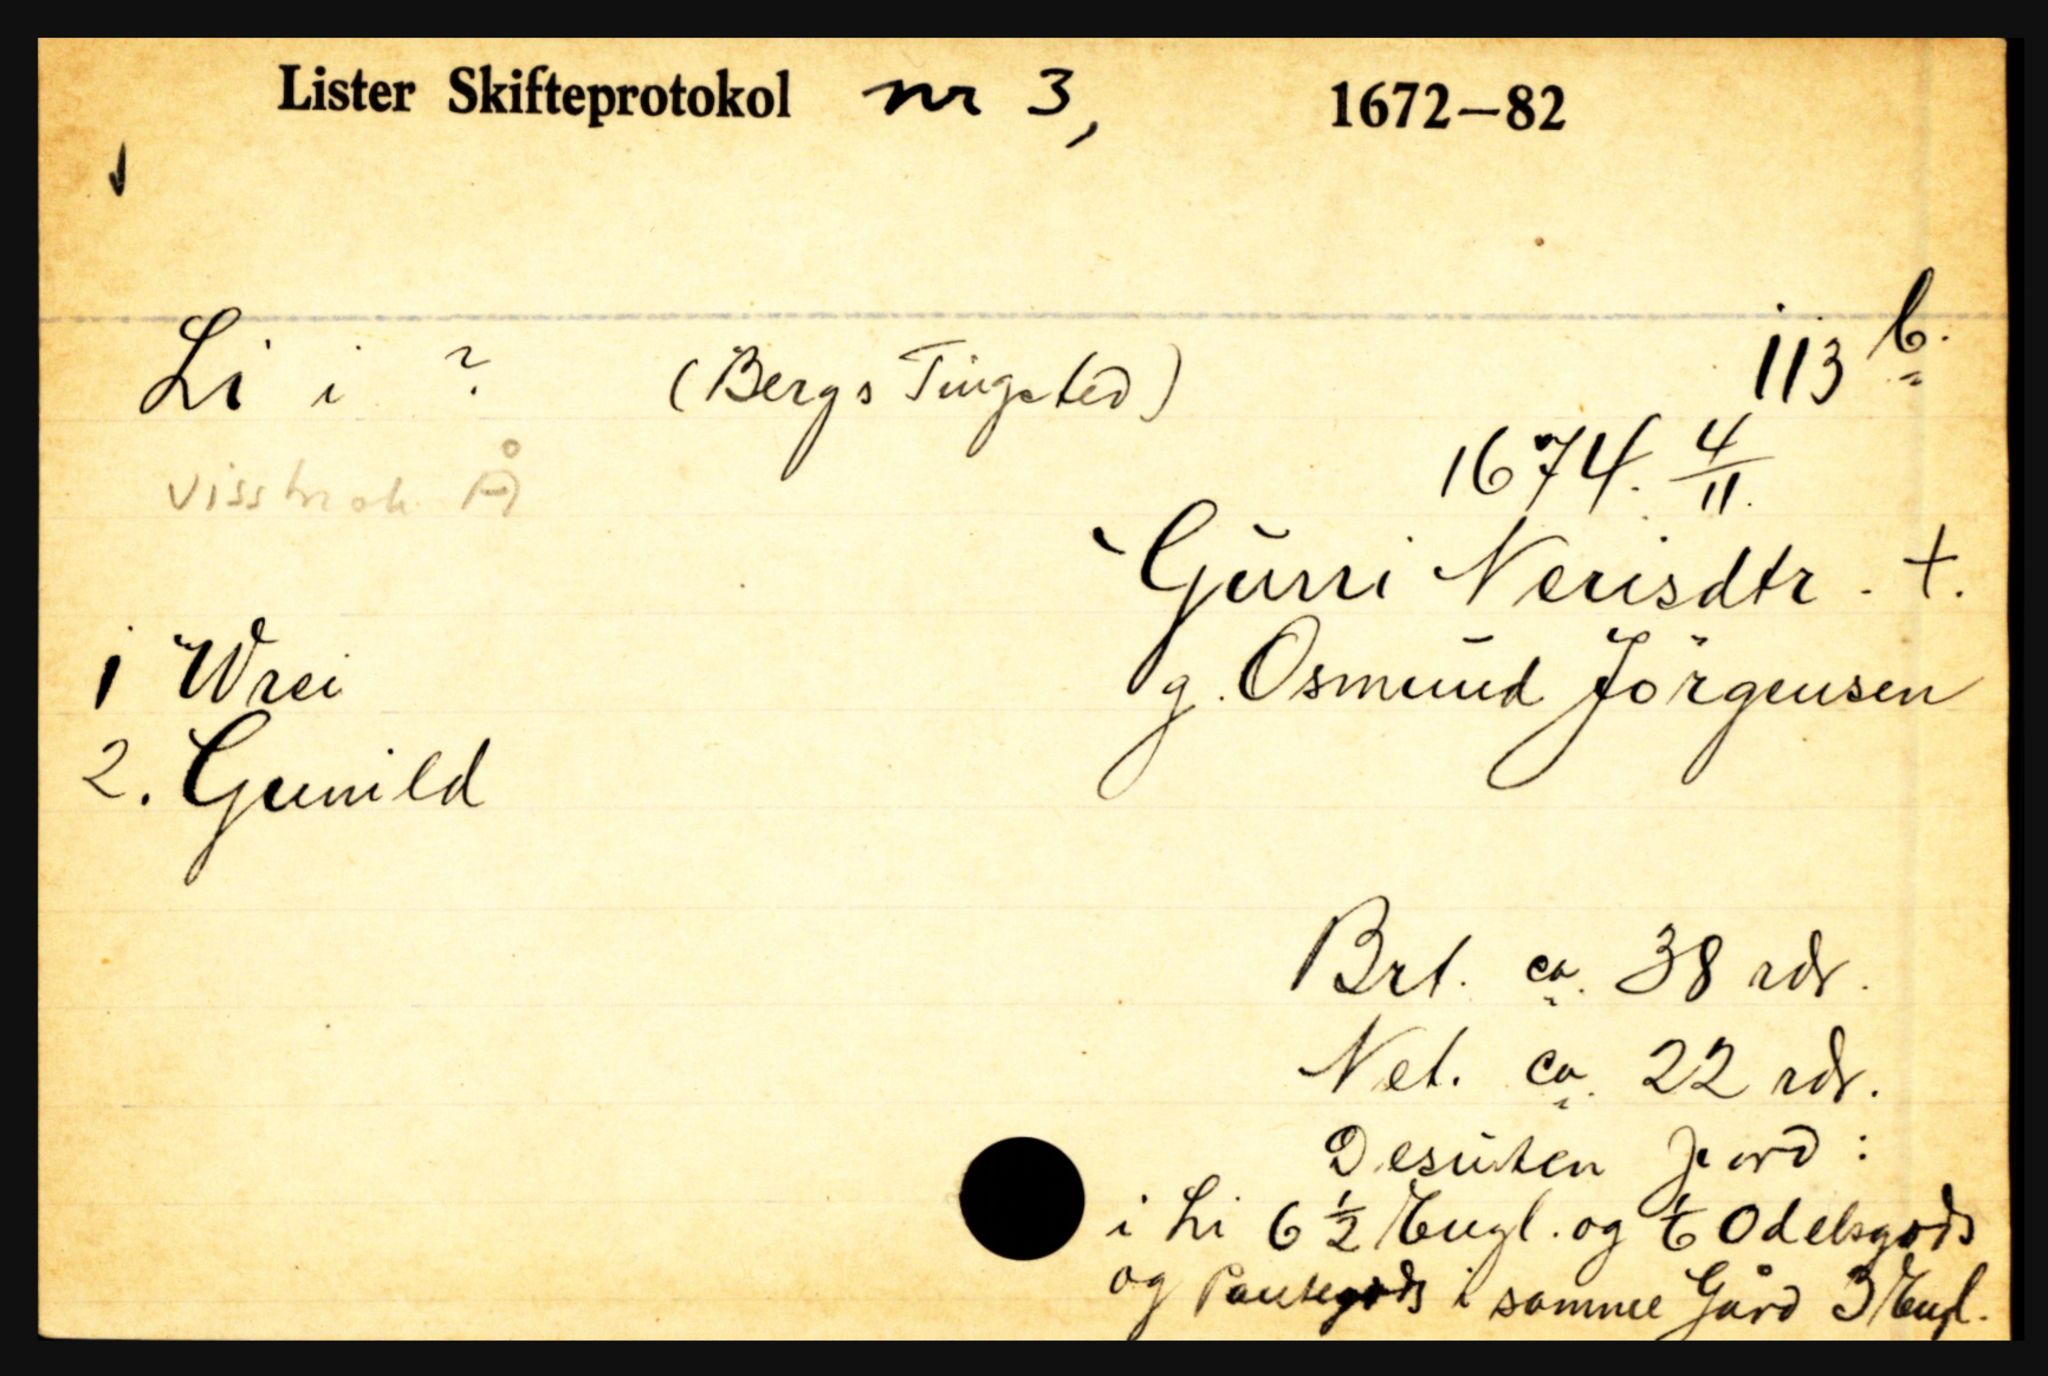 Lister Skifteprotokol nr 3, 1672—82
Li i ? (Bergs Tingsted) 113 b.
1674. 4/11.
Å
Gŭrri Nerisdtr. +.
1 Wrei
g. Osmŭnd Jörgensen
2. Gunild
Brt. ca. 38 rdr.
Net. ca. 22 rdr.
Desŭten jord:
i Li 6 1/2 Engl. og 1/6 Odelsgods
og Pantegods i samme Gård 3 Engl.